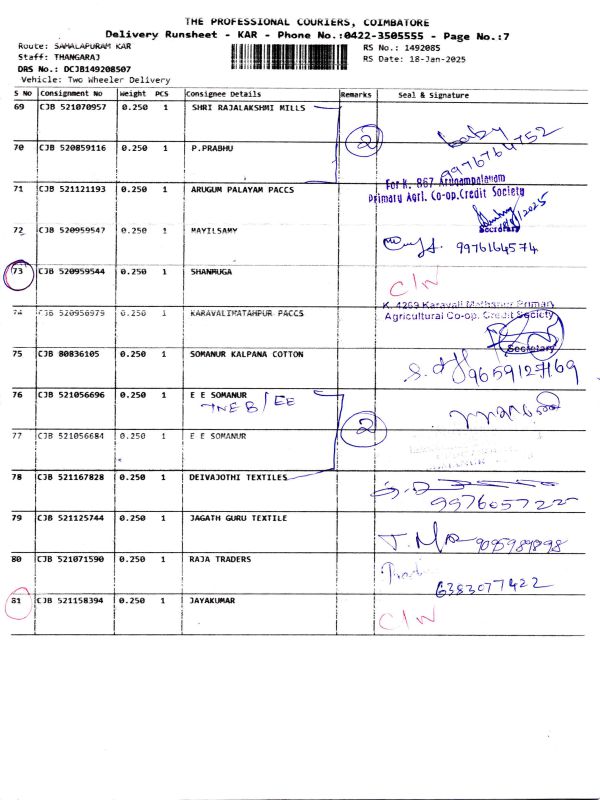 THE PROFESSIONAL COURIERS, COIMBATORE
Delivery Runsheet - KAR - Phone No.:0422-3505555 - Page No.:7
Route: SAMALAPURAM KAR
RS No.: 1492085
Staff: THANGARAJ
RS Date: 18-Jan-2025
DRS No.: DCJB149208507
Vehicle: Two Wheeler Delivery
S No Consignment No Weight PCS Consignee Details Remarks Seal & Signature
69 CJB 521070957 0.250 1 SHRI RAJALAKSHMI MILLS
2
baby
9976764752
70 CJB 520859116 0.250 1 P.PRABHU
For K. 867 Arugampalayam
71 CJB 521121193 0.250 1 ARUGUM PALAYAM PACCS
Primary Agri. Co-op. Credit Society
Secretary
72 CJB 520959547 0.250 1 MAYILSAMY
9976164574
73 CJB 520959544 0.250 1 SHANMUGA
C/W
K. 4269 Karavali Mathapur Primary
74 CJB 520956979 0.250 1 KARAVALIMATAHPUR PACCS
Agricultural Co-op. Credit Society
Secretary
75 CJB 80836105 0.250 1 SOMANUR KALPANA COTTON
9659127169
76 CJB 521056696 0.250 1 E E SOMANUR
TNEB/EE
2
77 CJB 521056684 0.250 1 E E SOMANUR
78 CJB 521167828 0.250 1 DEIVAJOTHI TEXTILES
9976057222
79 CJB 521125744 0.250 1 JAGATH GURU TEXTILE
9095989898
80 CJB 521071590 0.250 1 RAJA TRADERS
6383077422
81 CJB 521158394 0.250 1 JAYAKUMAR
C/W